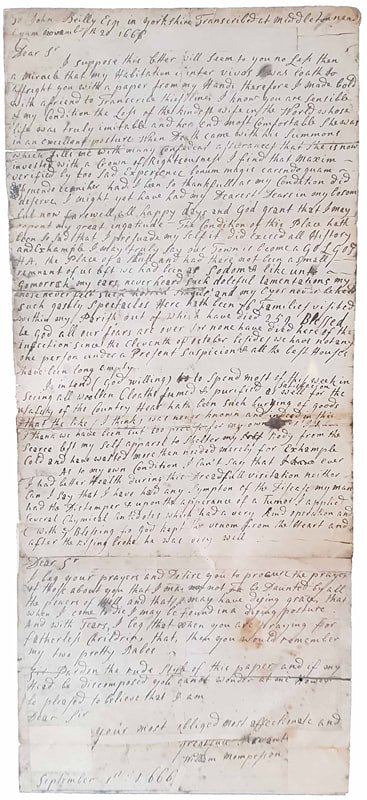 To John Beilby Esq in Yorkshire Transcribed at middleton
Eyam novembr th 20 1666
Dear Sr
I suppose this Letter will seem to you no less then
a miracle that my Habitation is inter vivos I was loath to
affright you with a paper from my Hands therefore I made bold
with a friend to Transcribe these lines I know you are sensible
of my Condition the Loss of the kindest wife in the World whose
life was truly imitable and her End most Comfortable She was
in an excellent posture when Death came with his Summons
which fills me with many Confident assurances that She is now
invested with a Crown of Righteousness I find that Maxim
verified by too sad Experience bonum magis carendo quam
fruendo cernitur had I been so thankfull as my Condition did
deserve I might yet have had my Dearest Dear in my bosom
but now farewell all happy days and God grant that I may
repent my great ingratitude The Condition of this Place hath
been so sad that I perswade my Self it did Exceed all History
and Example I may truly say our Town is become a GOLGO
THA the place of a Skull and had there not been a small
remnant of us left we had been as Sodom & like unto
Gomorrah my ears never heard such doleful lamentations my
nose never felt such and my Eyes never beheld
such gastly Spectacles Here hath been 76 families visited
within my Parish out of which have died 259 Blessed
be God all our fears are over for none have died here of the
infection since the Eleventh of october besides we have not any
one person under a Present Suspicion & all the Pest Houses
have been long empty
I intend (God willing) to Spend most of this week in
Seeing all woollen Cloaths fumed & purified as well for
the Safety of the Country Hear hath been such burning of goods
that the like I think was never known and indeed in this
I think we have been too for my own
Scarce left my Self apparel to Shelter my Body from the
Cold and have wasted more then needed meerly for Example
As to my own Condition I Can't Say that I ever
had better Health during this Dreadfull visitation neither
Can I say that I have had any Symphoms of the Disease my man
had the Distemper & upon the appearance of a Tumor I applied
Several Chymical Antidots which had a very kind operation and
with ye Blessing of God kept the venom from the Heart and
after the rising broke he was very well
Dear Sr
I beg your prayers and Desire you to procure the prayers
of those about you that I may not be Daunted by all
the powers of Hell and that I may have Dying grace that
when I come to die I may be found in a dying posture
And with Tears I beg that when you are praying for
Fatherless Children, that, then you would remember
my two pretty Babes
Pardon the rude Style of this paper and if my
Head be discomposed you cannot wonder at me however
be pleased to believe that I am
Dear Sir
your most obliged most affectionate and
greatful Servant
William Mompesson
September 1st: 1666